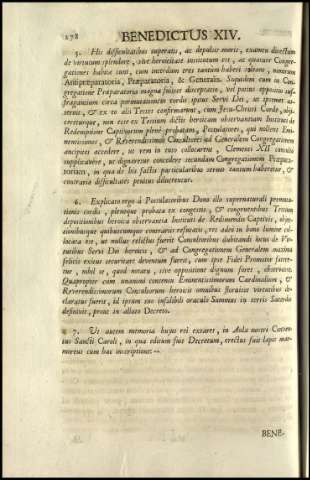 278 BENEDICTUS XIV.
5. His difficultatibus superatis, ac depulso moeris, examen directum
de virtutum splendore, sive heroicitate institutum est, ac quatuor Congre-
gationes habitæ sunt, cum interdum tres tantùm haberi soleant, nimirum
Antipræparatoria, Præparatoria, & Generalis. Siquidem cum in Con-
gregatione Præparatoria magna fuisset disceptatio, vel potius oppositio suf-
fragantium circa permutationem cordis ipsius Servi Dei, ut ipsemet as-
seruit, & ex eo alii Testes confirmarunt, cum Jesu-Christi Corde, obji-
cereturque, non esse ex Testium dictis heroicam observantiam Instituti de
Redemptione Captivorum plenè probatam, Postulatores, qui nollent Emi-
nentissimos, & Reverendissimos Consultores ad Generalem Congregationem
ancipites accedere, ut rem in tuto collocarent, Clementi XII humillimè
supplicavere, ut dignaretur concedere secundam Congregationem Præpara-
toriam, in qua de his factis particularibus sermo tantùm haberetur, &
contraria difficultates penitus diluerentur.
6. Explicato ergo à Postulatoribus Dono illo supernaturali permuta-
tionis cordis, plenèque probata ex congestis, & congruentibus Testium
depositionibus heroica observantia Instituti de Redimendis Captivis, obje-
ctionibusque quibuscumque contrariis refutatis, res adeò in bono lumine col-
locata est, ut nullus relictus fuerit Consultoribus dubitandi locus de Vir-
tutibus Servi Dei heroicis, & ad Congregationem Generalem maxima
felicis exitus securitate deventum fuerit, cum ipse Fidei Promotor fatere-
tur, nihil se, quod notatu, sive oppositione dignum foret, observare.
Quapropter cum unanimi consensu Eminentissimorum Cardinalium, &
Reverendissimorum Consultorum heroicis omnibus suisse virtutibus de-
claratus fuerit, id ipsum suo infallibili oraculo Summus in terris Sacerdos
definivit, prout in allato Decreto.
7. Ut autem memoria hujus rei extaret, in Aula nostri Conven-
tus Sancti Caroli, in qua editum fuit Decretum, erectus fuit lapis mar-
moreus cum hac inscriptione: --
BENE-